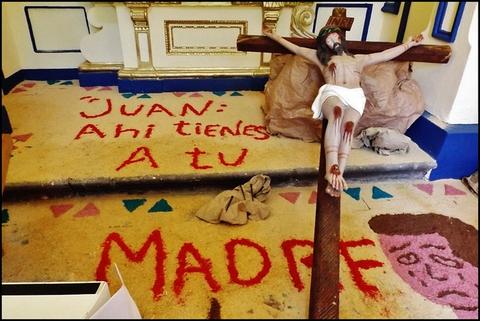 "JUAN:
AHÍ tiENES
A tU
MADRE